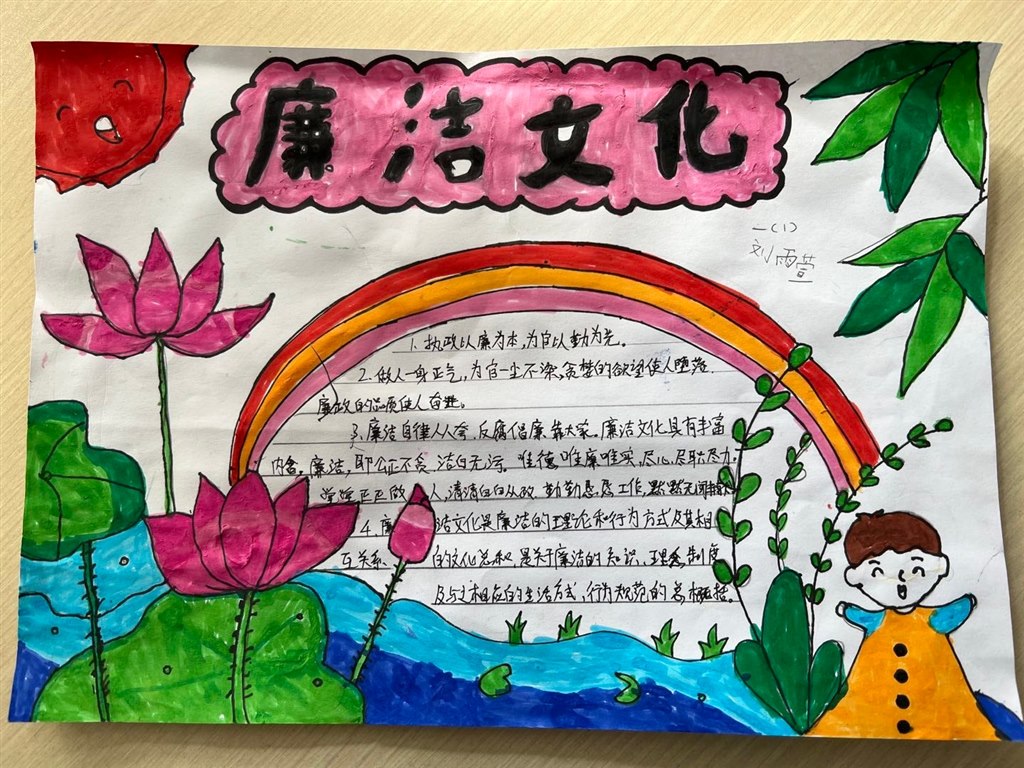 廉洁文化
一(1)
刘雨萱
1、执政以廉为本,为官以勤为先。
2、做人一身正气,为官一尘不染,贪婪的欲望使人堕落,
廉政的品质使人奋进。
3、廉洁自律人人夸、反腐倡廉靠大家。廉洁文化具有丰富
内含。廉洁,即公正不贪、洁白无污。唯德唯廉唯实,尽心尽职尽力。
堂堂正正做人,清清白白从政,勤勤恳恳工作,默默无闻
4、廉洁文化是廉洁的理论和行为方式及其相
互关系的文化总和,是关于廉洁的知识、理念、制度
及与之相应的生活方式、行为规范的总概括。